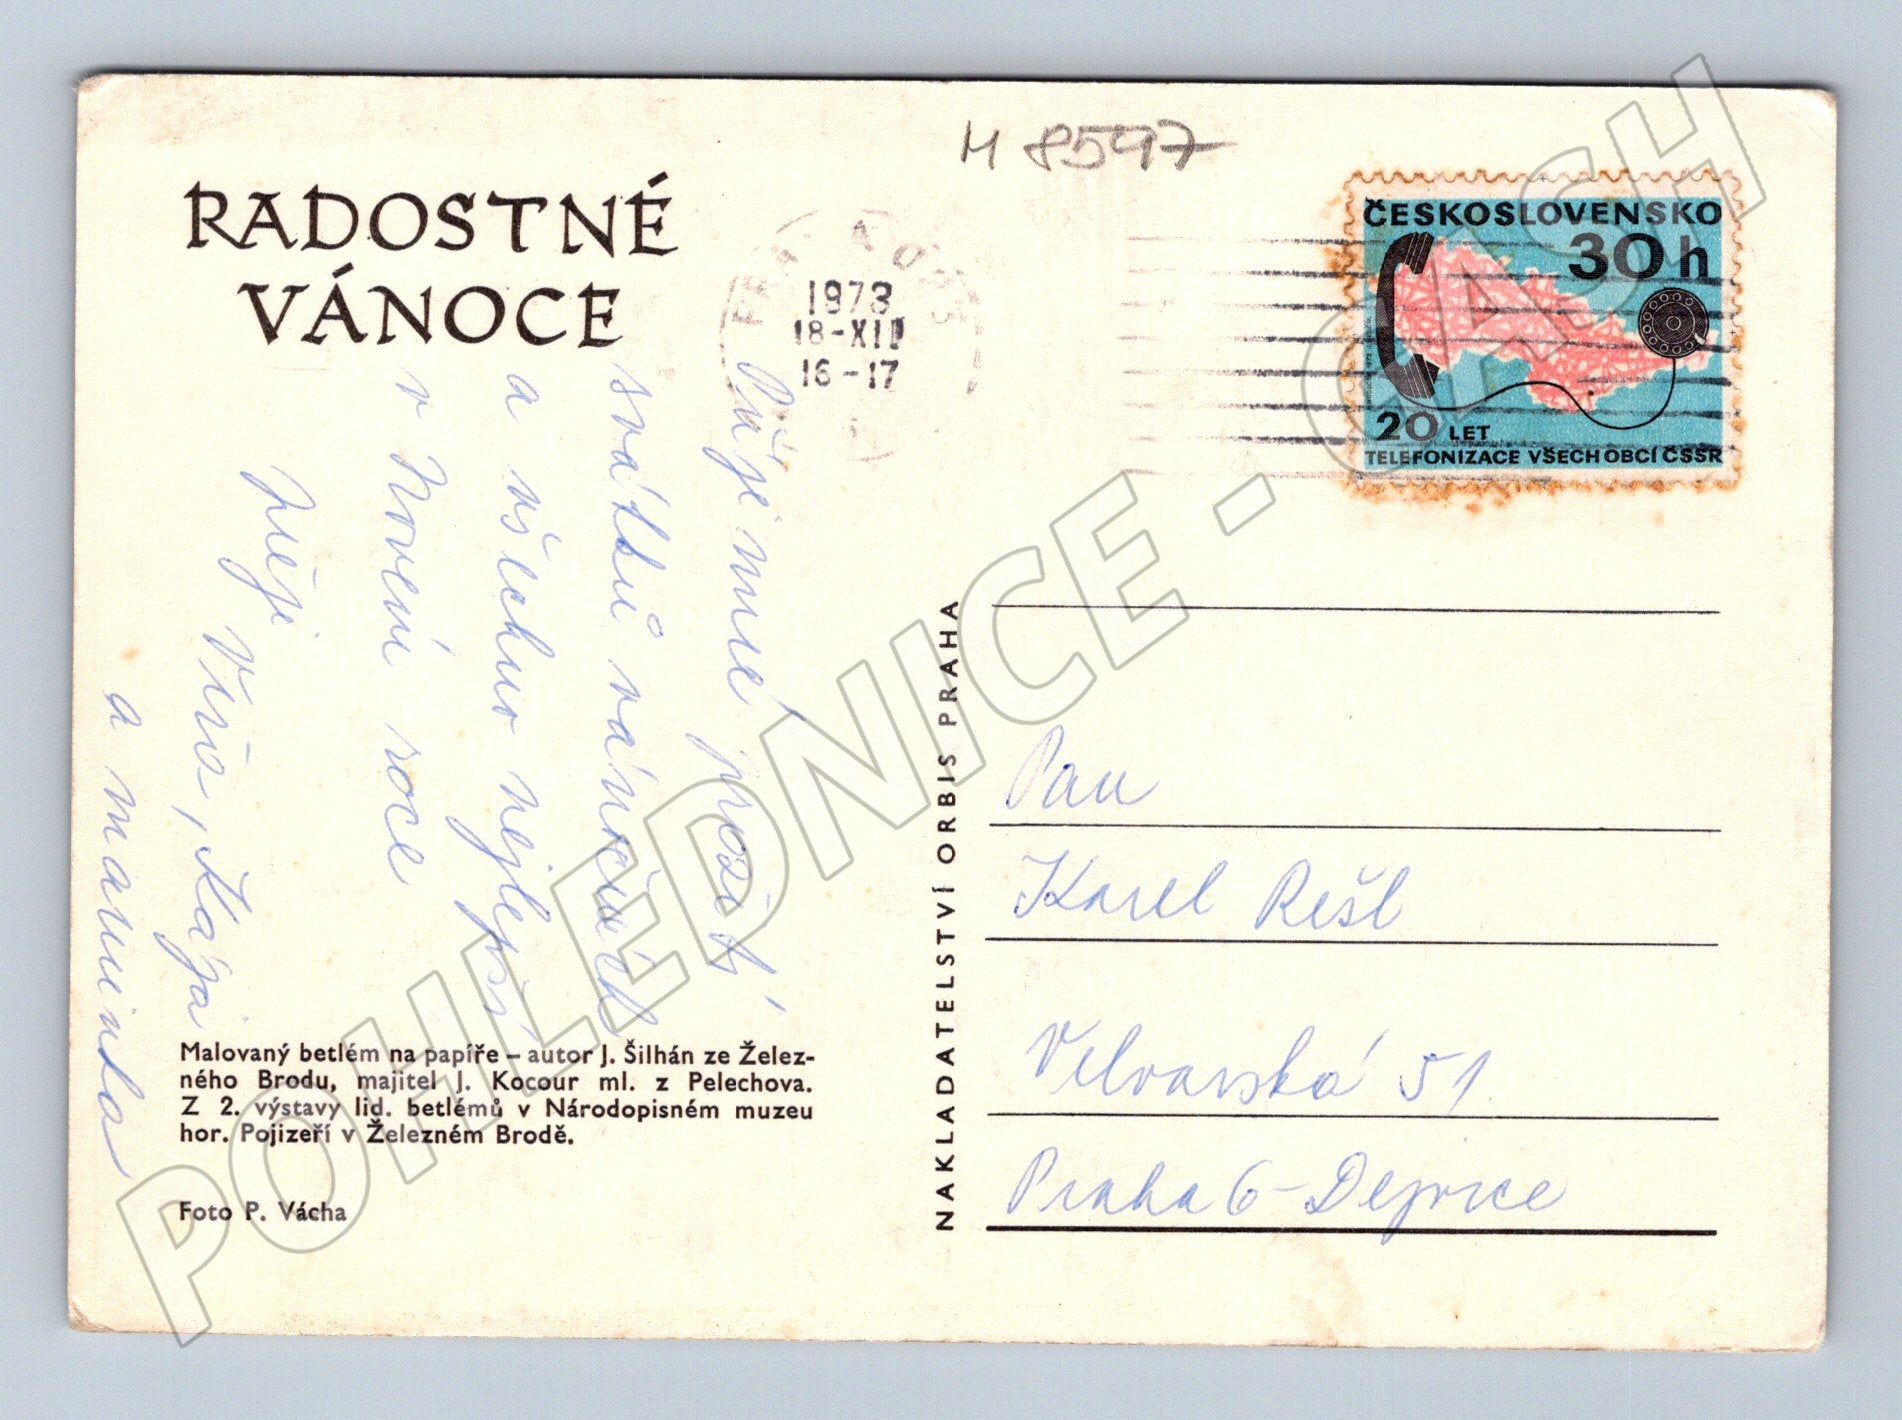 M 8597
RADOSTNÉ
VÁNOCE
1973
18-XII
16-17
ČESKOSLOVENSKO
30 h
20 LET
TELEFONIZACE VŠECH OBCÍ ČSSR
Příjemné prožití
svátků vánočních
a všechno nejlepší
v Novém roce
přeji
Věra, Kája
a maminka
Malovaný betlém na papíře – autor J. Šilhán ze Želez-
ného Brodu, majitel J. Kocour ml. z Pelechova.
Z 2. výstavy lid. betlémů v Národopisném muzeu
hor. Pojizeří v Železném Brodě.
Foto P. Vácha
NAKLADATELSTVÍ ORBIS PRAHA
Pan
Karel Rešl
Velvarská 51
Praha 6 - Dejvice
POHLEDNICE - CASH